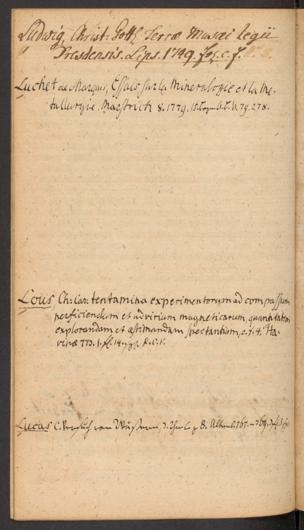 Ludwig, Christ. Gottl. Terræ Musæi Regii
Dresdensis. Lips. 1749. fol. c. f.
Luchet de Marquis, Essais sur la Mineralogie et la Me-
tallurgie. Mastrich 8. 1779.
Lous Ch. Car. tentamina experimentorum ad compassum
perficiendum et ad virium magneticarum quantitatem
explorandam et æstimandam spectantium, c. f. 4. Ha-
vniæ 773.
Lucas C. Versuch von 8.